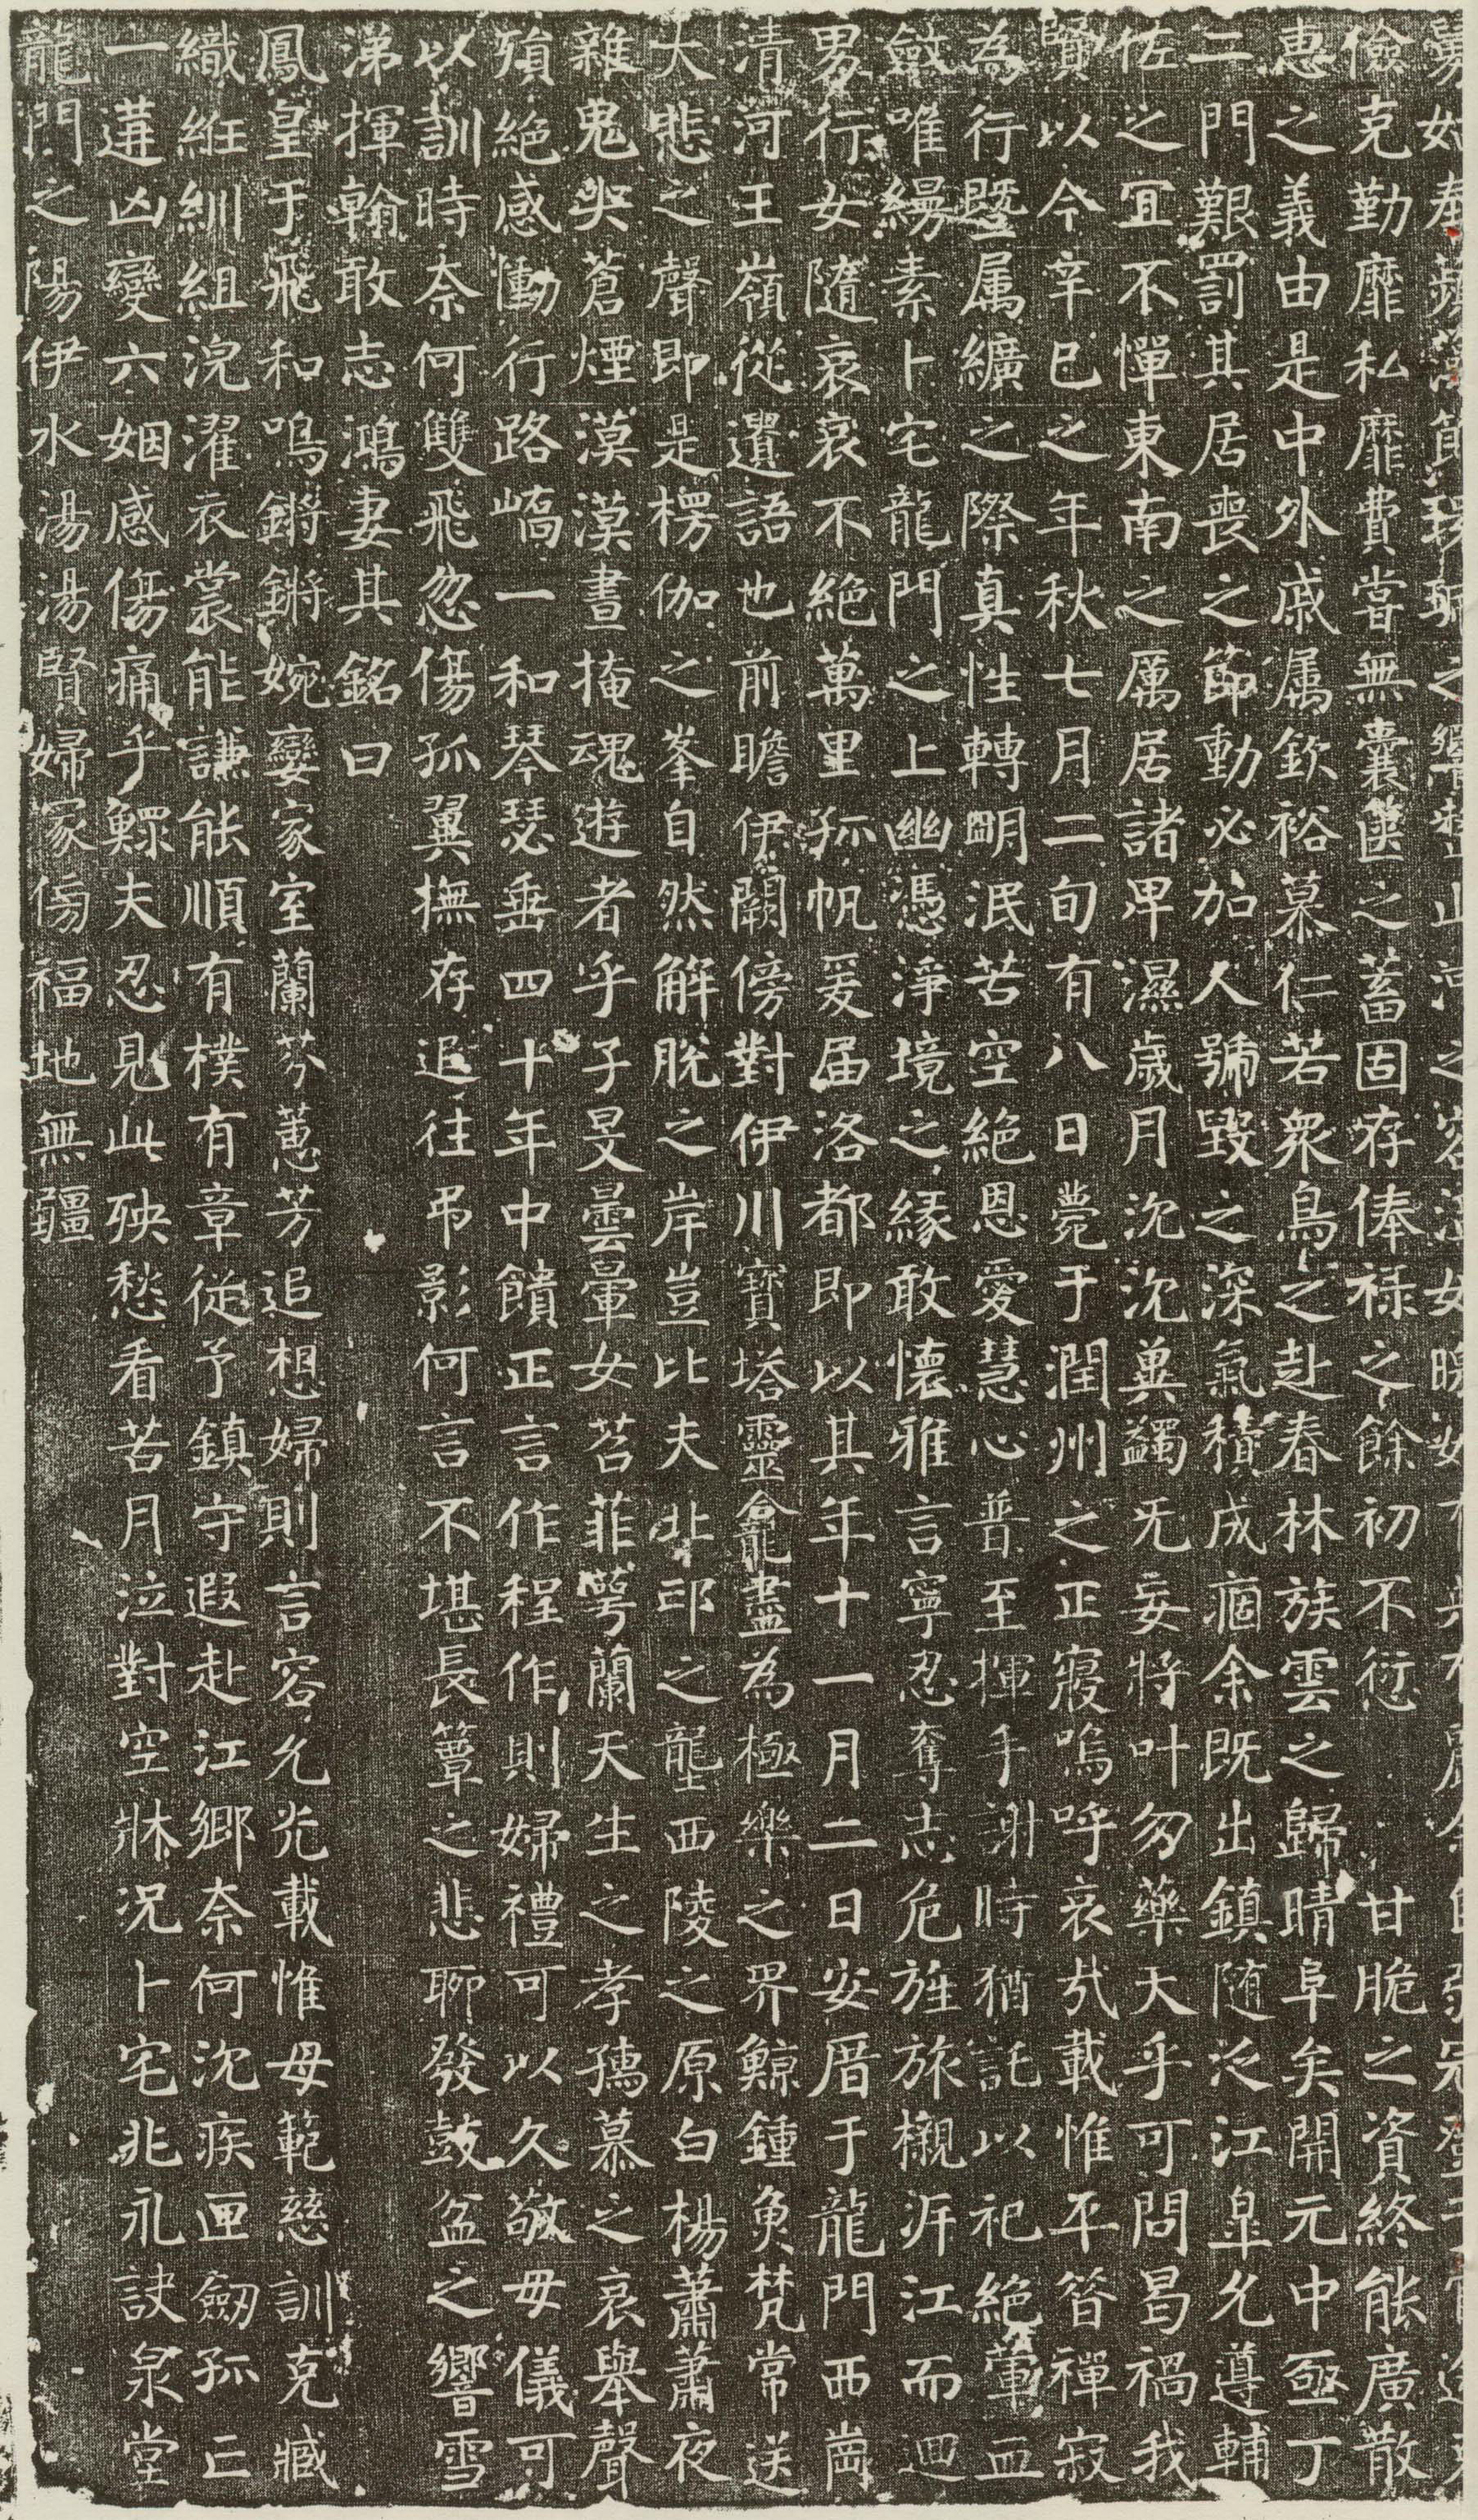 舅姑奉蘋
儉克勤靡私靡費嘗無囊篋之蓄固存俸祿之餘初不愆甘脆之資終能廣散
惠之義由是中外戚属欽裕慕仁若眾鳥之赴春林族雲之歸晴阜矣開元中亟丁
二門艱罰其居喪之節動必加人號毀之深氣積成痼余既出鎮随泛江皐允遵輔
佐之冝不憚東南之厲居諸卑濕歲月沈沈兾蠲旡妄將叶勿藥天乎可問曷禍我
賢以今辛巳之年秋七月二旬有八日薨于潤州之正寢嗚呼哀㢤載惟平昝禪寂
為行暨属纊之際真性轉明泯苦空絕恩愛慧心普至揮手謝時猶託以祀絕葷血
斂唯縵素卜宅龍門之上幽憑淨境之緣敢懷雅言寧忍奪志危旌旅櫬泝江而迴
男行女隨哀哀不絕萬里孤帆爰届洛都即以其年十一月二日安厝于龍門西崗
清河王嶺從遺語也前瞻伊闕傍對伊川寶塔靈龕盡為極樂之界鯨鍾魚梵常送
大悲之聲即是楞伽之峯自然解脫之岸豈比夫北邙之壟西陵之原白楊蕭蕭夜
雜鬼哭蒼煙漠漠晝掩魂遊者乎子旻曇暈女苕菲萼蘭天生之孝孺慕之哀舉聲
殞絕感慟行路嶠一和琴瑟垂四十年中饋正言作程作則婦禮可以久敬毋儀可
以訓時奈何雙飛忽傷孤翼撫存追往弔影何言不堪長簟之悲聊發鼓盆之響雪
涕揮翰敢志鴻妻其銘曰
鳳皇于飛和鳴鏘鏘婉孌家室蘭芬蕙芳追想婦則言容允光載惟母範慈訓克臧
織紝紃組浣濯衣裳能謙能順有樸有章從予鎮守遐赴江鄉奈何沈疾匣劒孤亡
一遘凶變六姻感傷痛乎鰥夫忍見此殃愁看苦月泣對空牀况卜宅兆永訣泉堂
龍門之陽伊水湯湯賢婦冢傍福地無疆